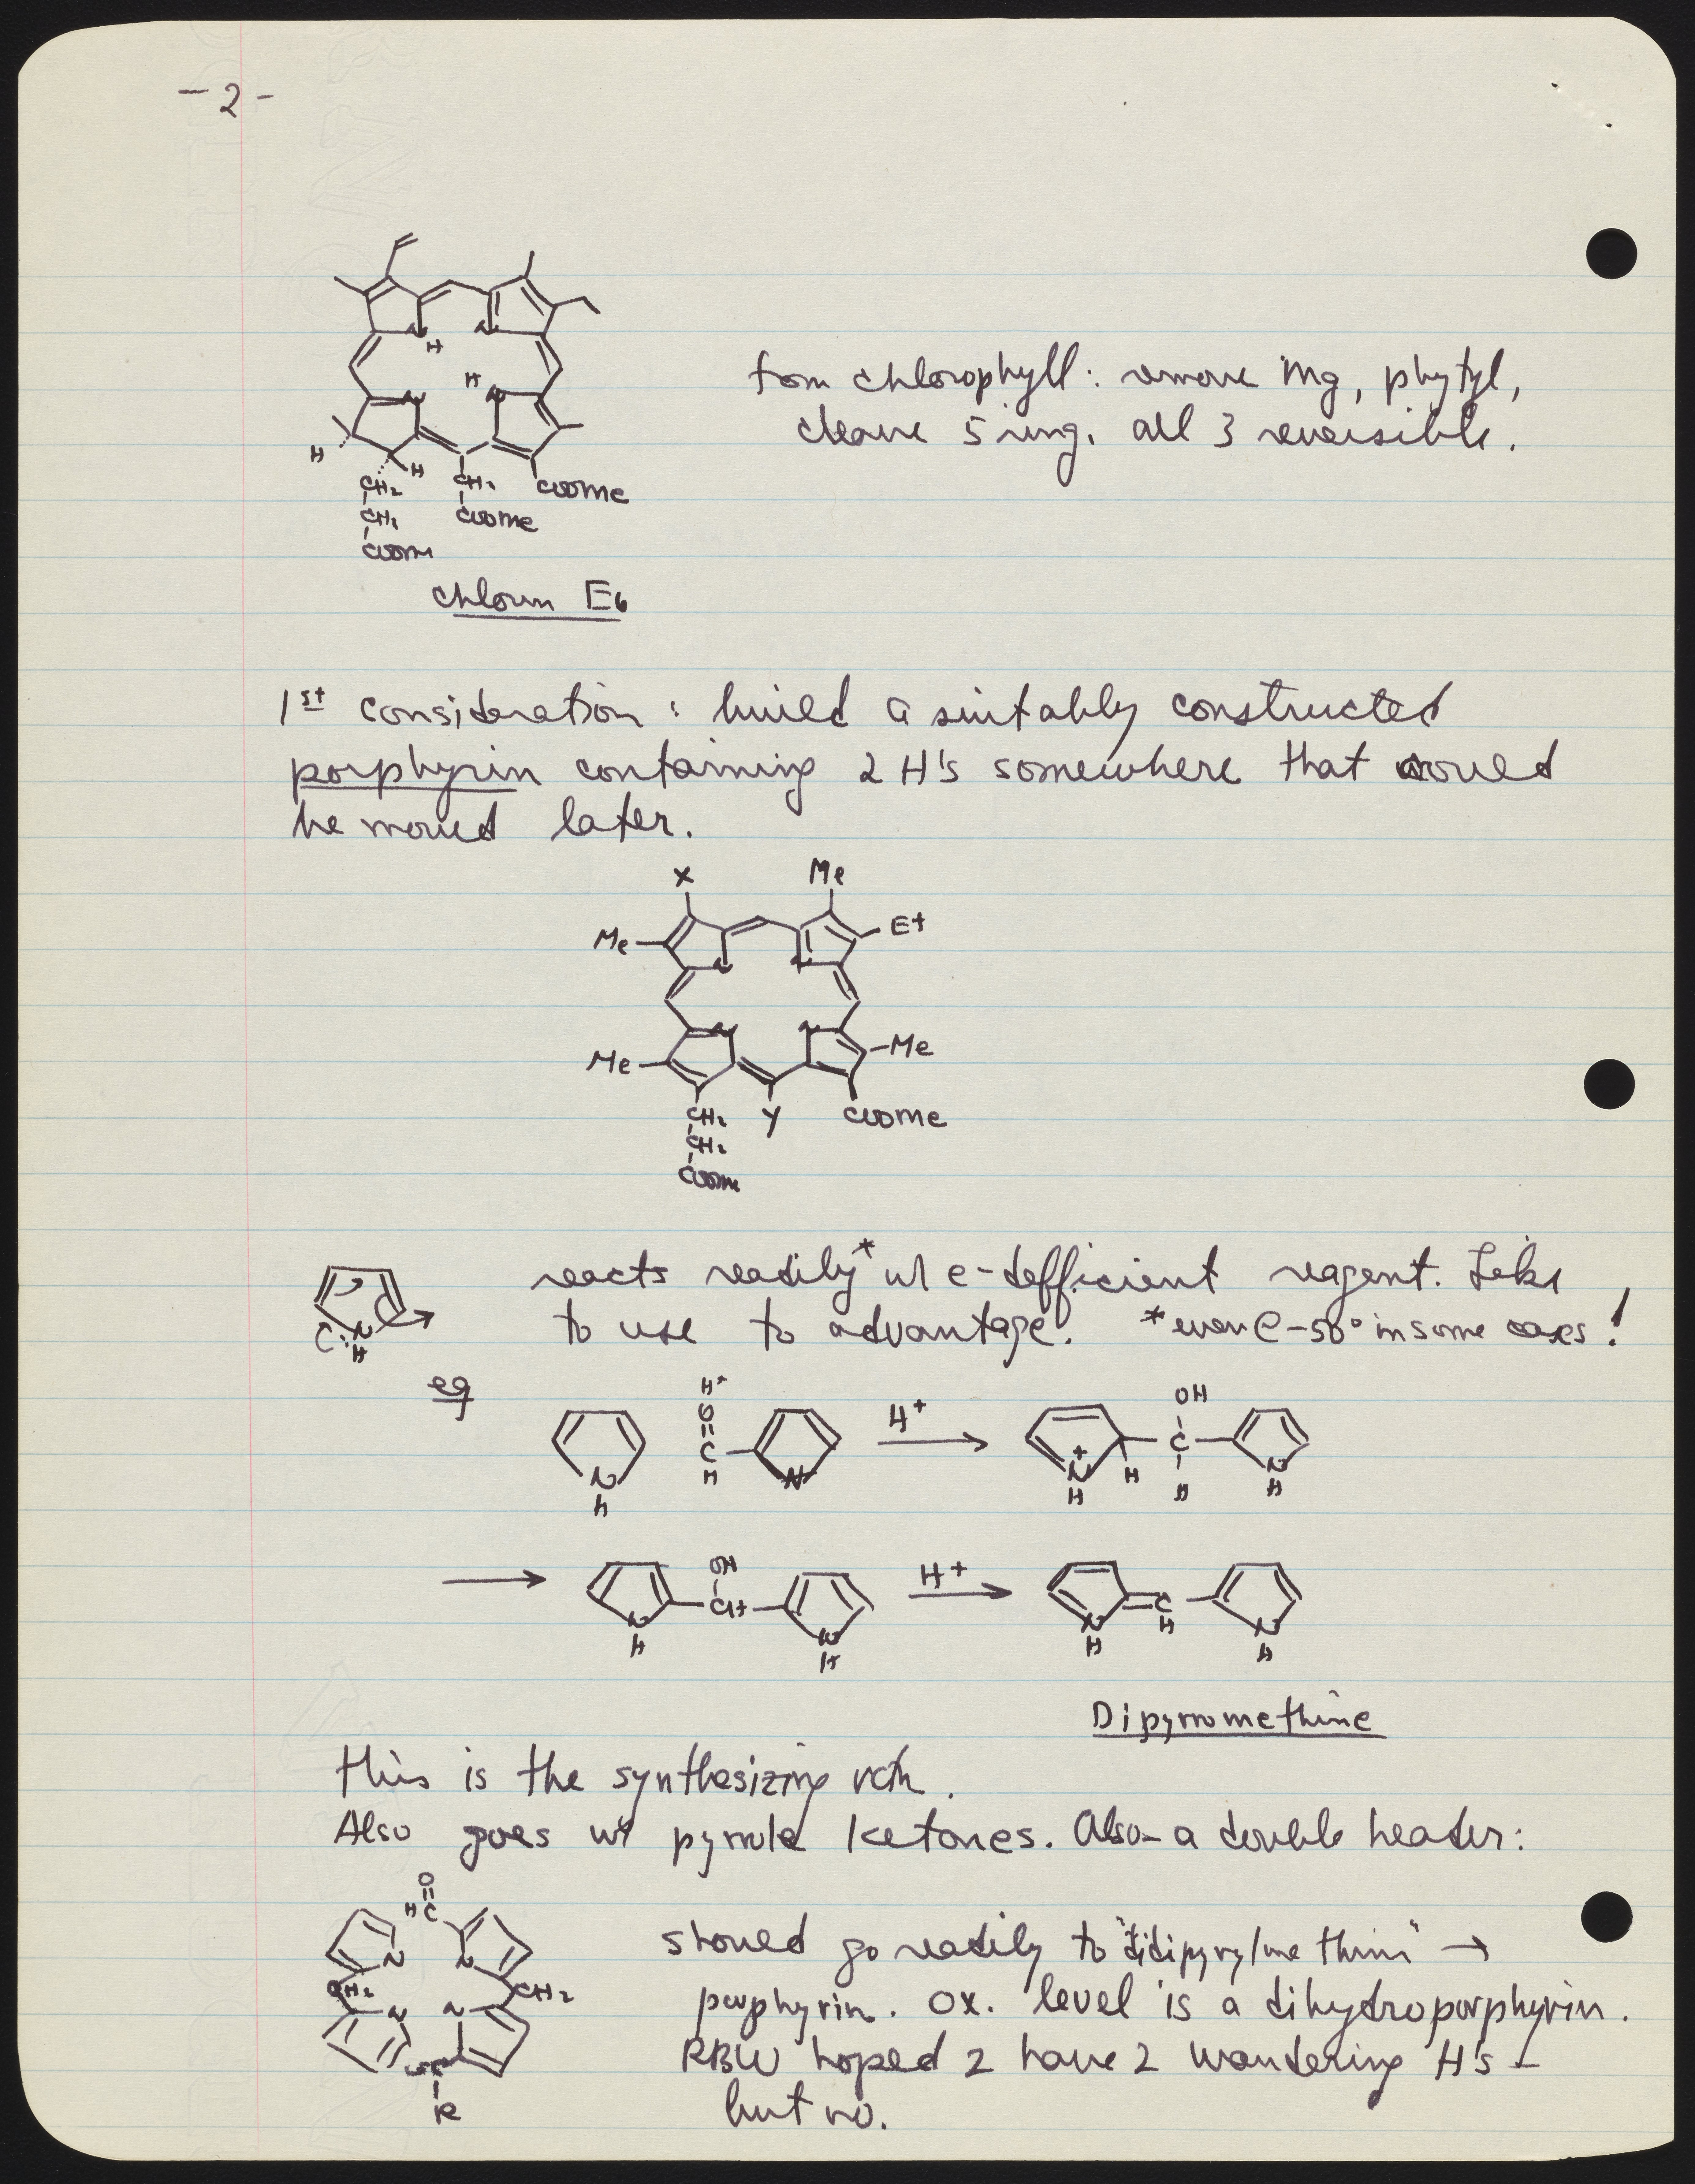 - 2 -
H
H
from chlorophyll: remove Mg, phytyl,
cleave 5 ring. all 3 reversible.
H
H
CH2 CH2 COOMe
CH2 COOMe
COOMe
Chlorin E6
1st consideration: build a suitably constructed
porphyrin containing 2 H's somewhere that would
be moved later.
X Me
Me Et
N N
N N
Me Me
CH2 Y COOMe
CH2
COOMe
reacts readily* w/ e-defficient reagent. Like
to use to advantage. *even @ -50° in some cases!
N
H
eg
H+
O H+ OH
C C
N H N N H H N
H H H
OH
N CH N H+ N C N
H H H H H
Dipyrromethine
This is the synthesizing rxn.
Also goes w/ pyrrole ketones. Also - a double header:
O
H C
N N
CH2 CH2
N N
R
should go readily to "didipyrylmethine" →
porphyrin. Ox. level is a dihydroporphyrin.
RBW hoped 2 have 2 wandering H's -
but no.